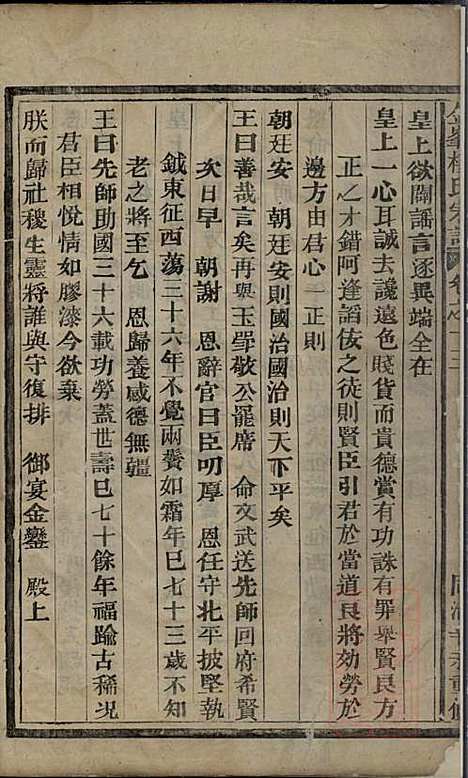 皇上欲闢謠言逐異端全在
皇上一心耳誠去讒遠色賤貨而貴德賞有功誅有罪舉賢良方
正之才錯阿逢謟佞之徒則賢臣引君於當道良將効勞於
邊方由君心一正則
朝廷安　朝廷安則國治國治則天下平矣
王曰善哉言矣再與玉斝敬公罷席　命文武送先師回府希賢
次日早　朝謝　恩辭官曰臣叨厚　恩任守北平披堅執
鉞東征西蕩三十六年不覺兩鬢如霜年已七十三歲不知
老之將至乞　恩歸養感德無疆
王曰先師助國三十六載功勞蓋世壽已七十餘年福踰古稀况
君臣相悅情如膠漆今欲棄
朕而歸社稷生靈將誰與守復排　御宴金鑾　殿上